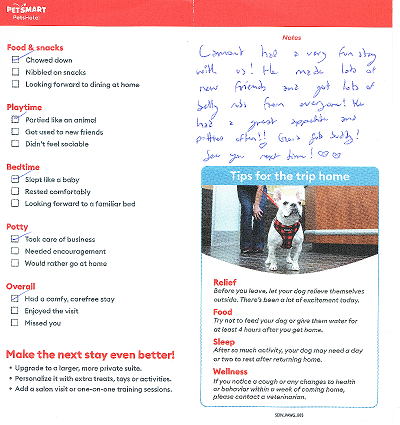 PETSMART
PetsHotel
Food & snacks
Chowed down
Nibbled on snacks
Looking forward to dining at home
Playtime
Partied like an animal
Got used to new friends
Didn't feel sociable
Bedtime
Slept like a baby
Rested comfortably
Looking forward to a familiar bed
Potty
Took care of business
Needed encouragement
Would rather go at home
Overall
Had a comfy, carefree stay
Enjoyed the visit
Missed you
Make the next stay even better!
• Upgrade to a larger, more private suite.
• Personalize it with extra treats, toys or activities.
• Add a salon visit or one-on-one training sessions.
Notes
had a very fun stay
with us! He made lots of
new friends and got lots of
belly rubs from everyone! He
had a great appetite and
potties often!! Good job buddy!
See you next time! ♡♡
Tips for the trip home
Relief
Before you leave, let your dog relieve themselves
outside. There's been a lot of excitement today.
Food
Try not to feed your dog or give them water for
at least 4 hours after you get home.
Sleep
After so much activity, your dog may need a day
or two to rest after returning home.
Wellness
If you notice a cough or any changes to health
or behavior within a week of coming home,
please contact a veterinarian.